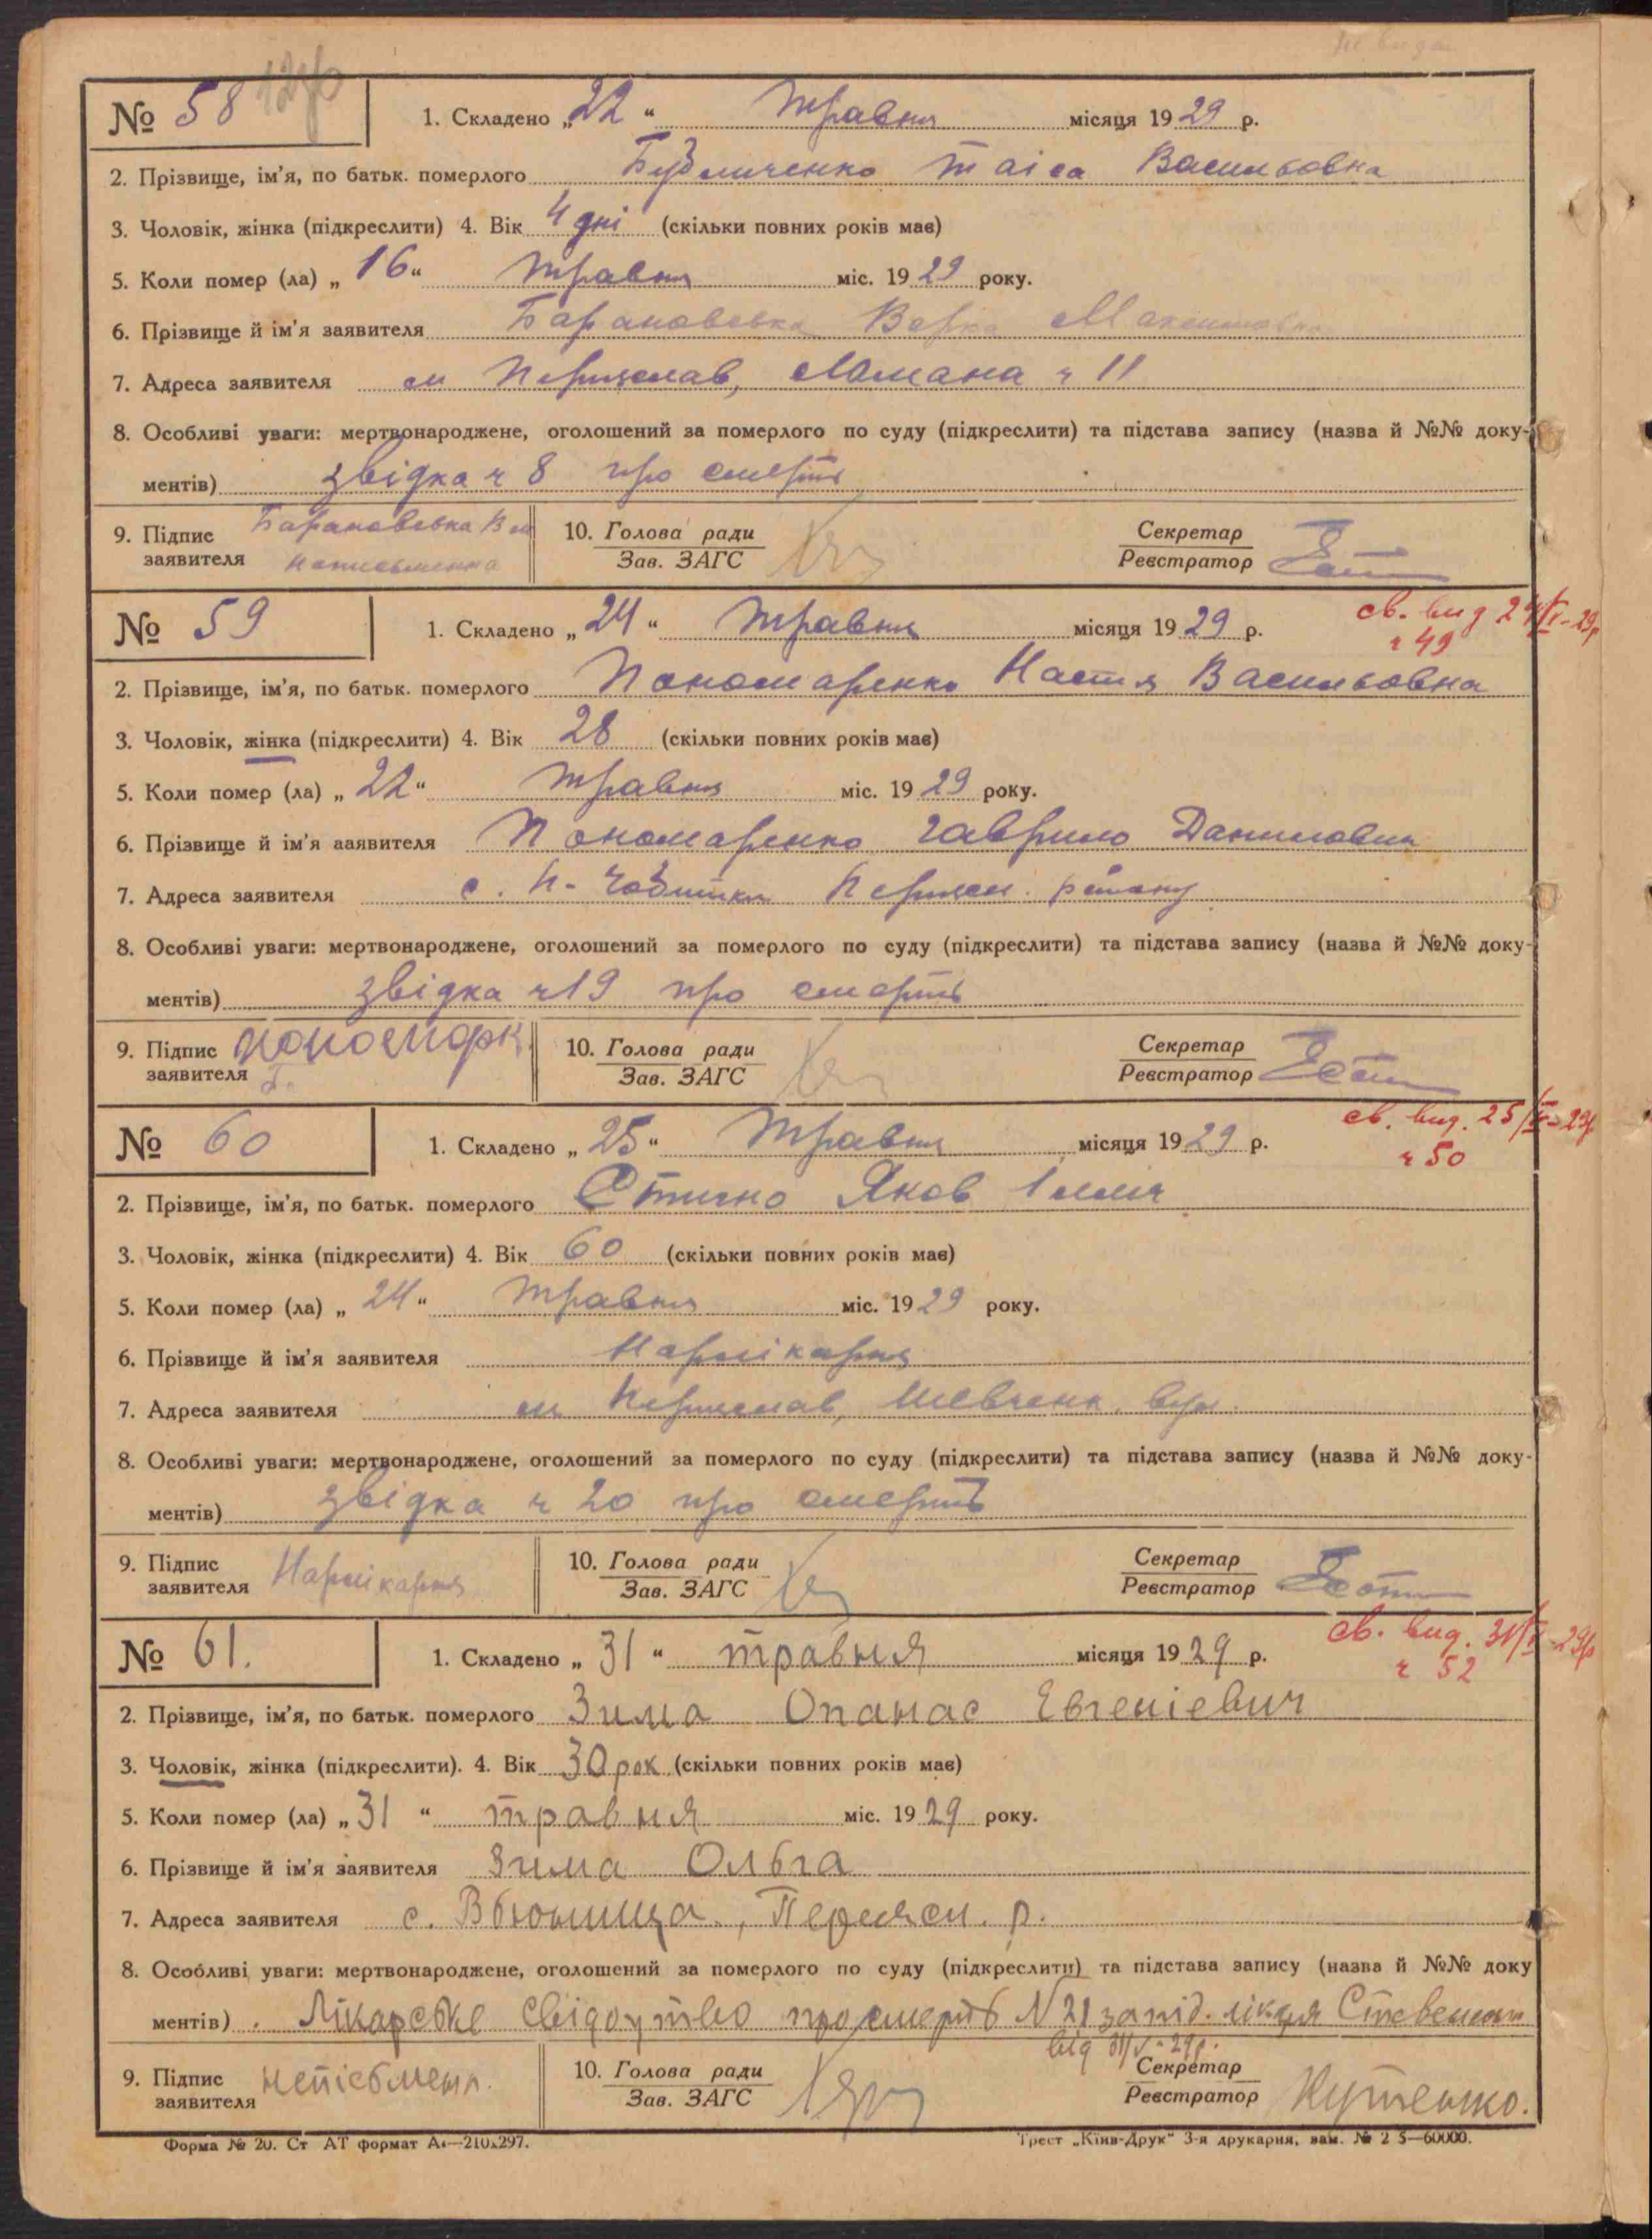 № 58
1. Складено „22“ травня місяця 1929 р.
2. Прізвище, ім’я, по батьк. померлого Бубличенко Таіса Васильовна
3. Чоловік, жінка (підкреслити) 4. Вік 4 дні (скільки повних років має)
5. Коли помер (ла) „16“ травня міс. 1929 року.
6. Прізвище й ім’я заявителя Барановська Варка Максимовна
7. Адреса заявителя м Переяслав, ч 11
8. Особливі уваги: мертвонароджене, оголошений за померлого по суду (підкреслити) та підстава запису (назва й №№ доку-
ментів) звідка ч 8 про смерть
9. Підпис заявителя Барановська В м неписьменна
10. Голова ради
Зав. ЗАГС
Секретар
Реєстратор
№ 59
1. Складено „24“ травня місяця 1929 р.
св. вид 24/V-29р
ч 49
2. Прізвище, ім’я, по батьк. померлого Пономаренко Настя Васильовна
3. Чоловік, жінка (підкреслити) 4. Вік 28 (скільки повних років має)
5. Коли помер (ла) „22“ травня міс. 1929 року.
6. Прізвище й ім’я заявителя Пономаренко Гаврило Данилович
7. Адреса заявителя с. Переясл. району
8. Особливі уваги: мертвонароджене, оголошений за померлого по суду (підкреслити) та підстава запису (назва й №№ доку-
ментів) звідка ч 19 про смерть
9. Підпис заявителя Пономарк Г.
10. Голова ради
Зав. ЗАГС
Секретар
Реєстратор
№ 60
1. Складено „25“ травня місяця 1929 р.
св. вид. 25/V-29р
ч 50
2. Прізвище, ім’я, по батьк. померлого Яков Ілліч
3. Чоловік, жінка (підкреслити) 4. Вік 60 (скільки повних років має)
5. Коли помер (ла) „24“ травня міс. 1929 року.
6. Прізвище й ім’я заявителя Нарлікарня
7. Адреса заявителя м Переяслав, Шевченк. вул.
8. Особливі уваги: мертвонароджене, оголошений за померлого по суду (підкреслити) та підстава запису (назва й №№ доку-
ментів) звідка ч 20 про смерть
9. Підпис заявителя Нарлікарня
10. Голова ради
Зав. ЗАГС
Секретар
Реєстратор
№ 61.
1. Складено „31“ травня місяця 1929 р.
св. вид. 31/V-29р
ч 52
2. Прізвище, ім’я, по батьк. померлого Зима Опанас Евгеніевич
3. Чоловік, жінка (підкреслити). 4. Вік 30 рок (скільки повних років має)
5. Коли помер (ла) „31“ травня міс. 1929 року.
6. Прізвище й ім’я заявителя Зима Ольга
7. Адреса заявителя с. Вьюнища, Переясл. р.
8. Особливі уваги: мертвонароджене, оголошений за померлого по суду (підкреслити) та підстава запису (назва й №№ доку
ментів). Лікарське свідоцтво про смерть N 21 за під. лікаря
від 31/V-29р.
9. Підпис заявителя неписьменн.
10. Голова ради
Зав. ЗАГС
Секретар
Реєстратор Кутенко.
Форма № 20. Ст АТ формат А4—210х297.
Трест „Київ-Друк“ 3-я друкарня, зам. № 2 5—60000.